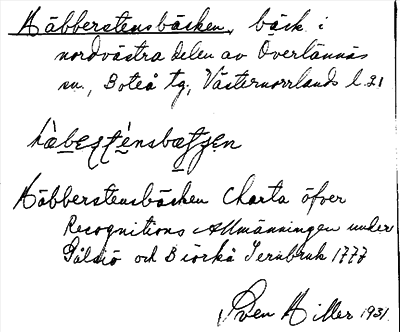 Häbberstensbäcken, bäck i
nordvästra delen av Överlännäs
sn, Boteå tg, Västernorrlands l. 21
hàbestténsbættjen
Häbberstensbäcken Charta öfver
Recognitions Allmänningen under
Gålsjö och Biörkå Jernbruk 1777
Sven Hiller 1931.